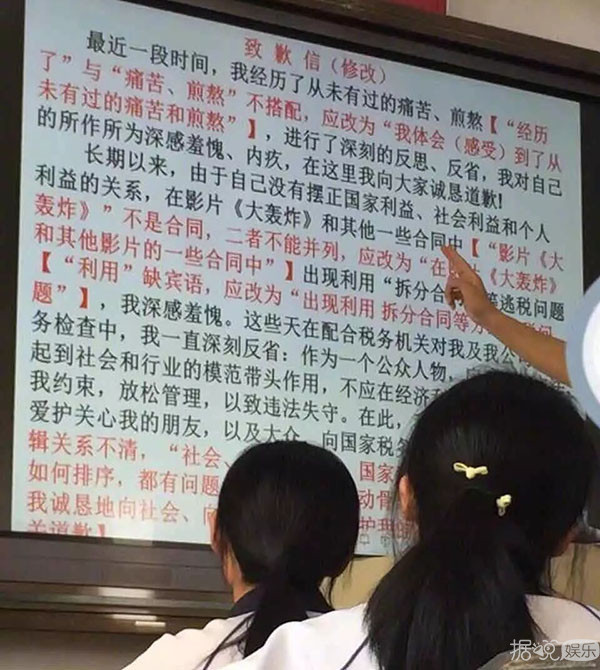 致 歉 信（修改）
最近一段时间，我经历了从未有过的痛苦、煎熬【“经历
了”与“痛苦、煎熬”不搭配，应改为“我体会（感受）到了从
未有过的痛苦和煎熬”】，进行了深刻的反思、反省，我对自己
的所作所为深感羞愧、内疚，在这里我向大家诚恳道歉!
长期以来，由于自己没有摆正国家利益、社会利益和个人
利益的关系，在影片《大轰炸》和其他一些合同中【“影片《大
轰炸》”不是合同，二者不能并列，应改为“在 《大轰炸》
和其他影片的一些合同中”】出现利用“拆分合 逃税问题
【“利用”缺宾语，应改为“出现利用 拆分合同等
题”】，我深感羞愧。这些天在配合税务机关对我及我公
务检查中，我一直深刻反省：作为一个公众人物，
起到社会和行业的模范带头作用，不应在经济
我约束，放松管理，以致违法失守。在此，
爱护关心我的朋友，以及大众，向国家税务
辑关系不清，“社会、 国家
如何排序，都有问题 动骨
我诚恳地向社会、向 护我的
关道歉】
据说娱乐